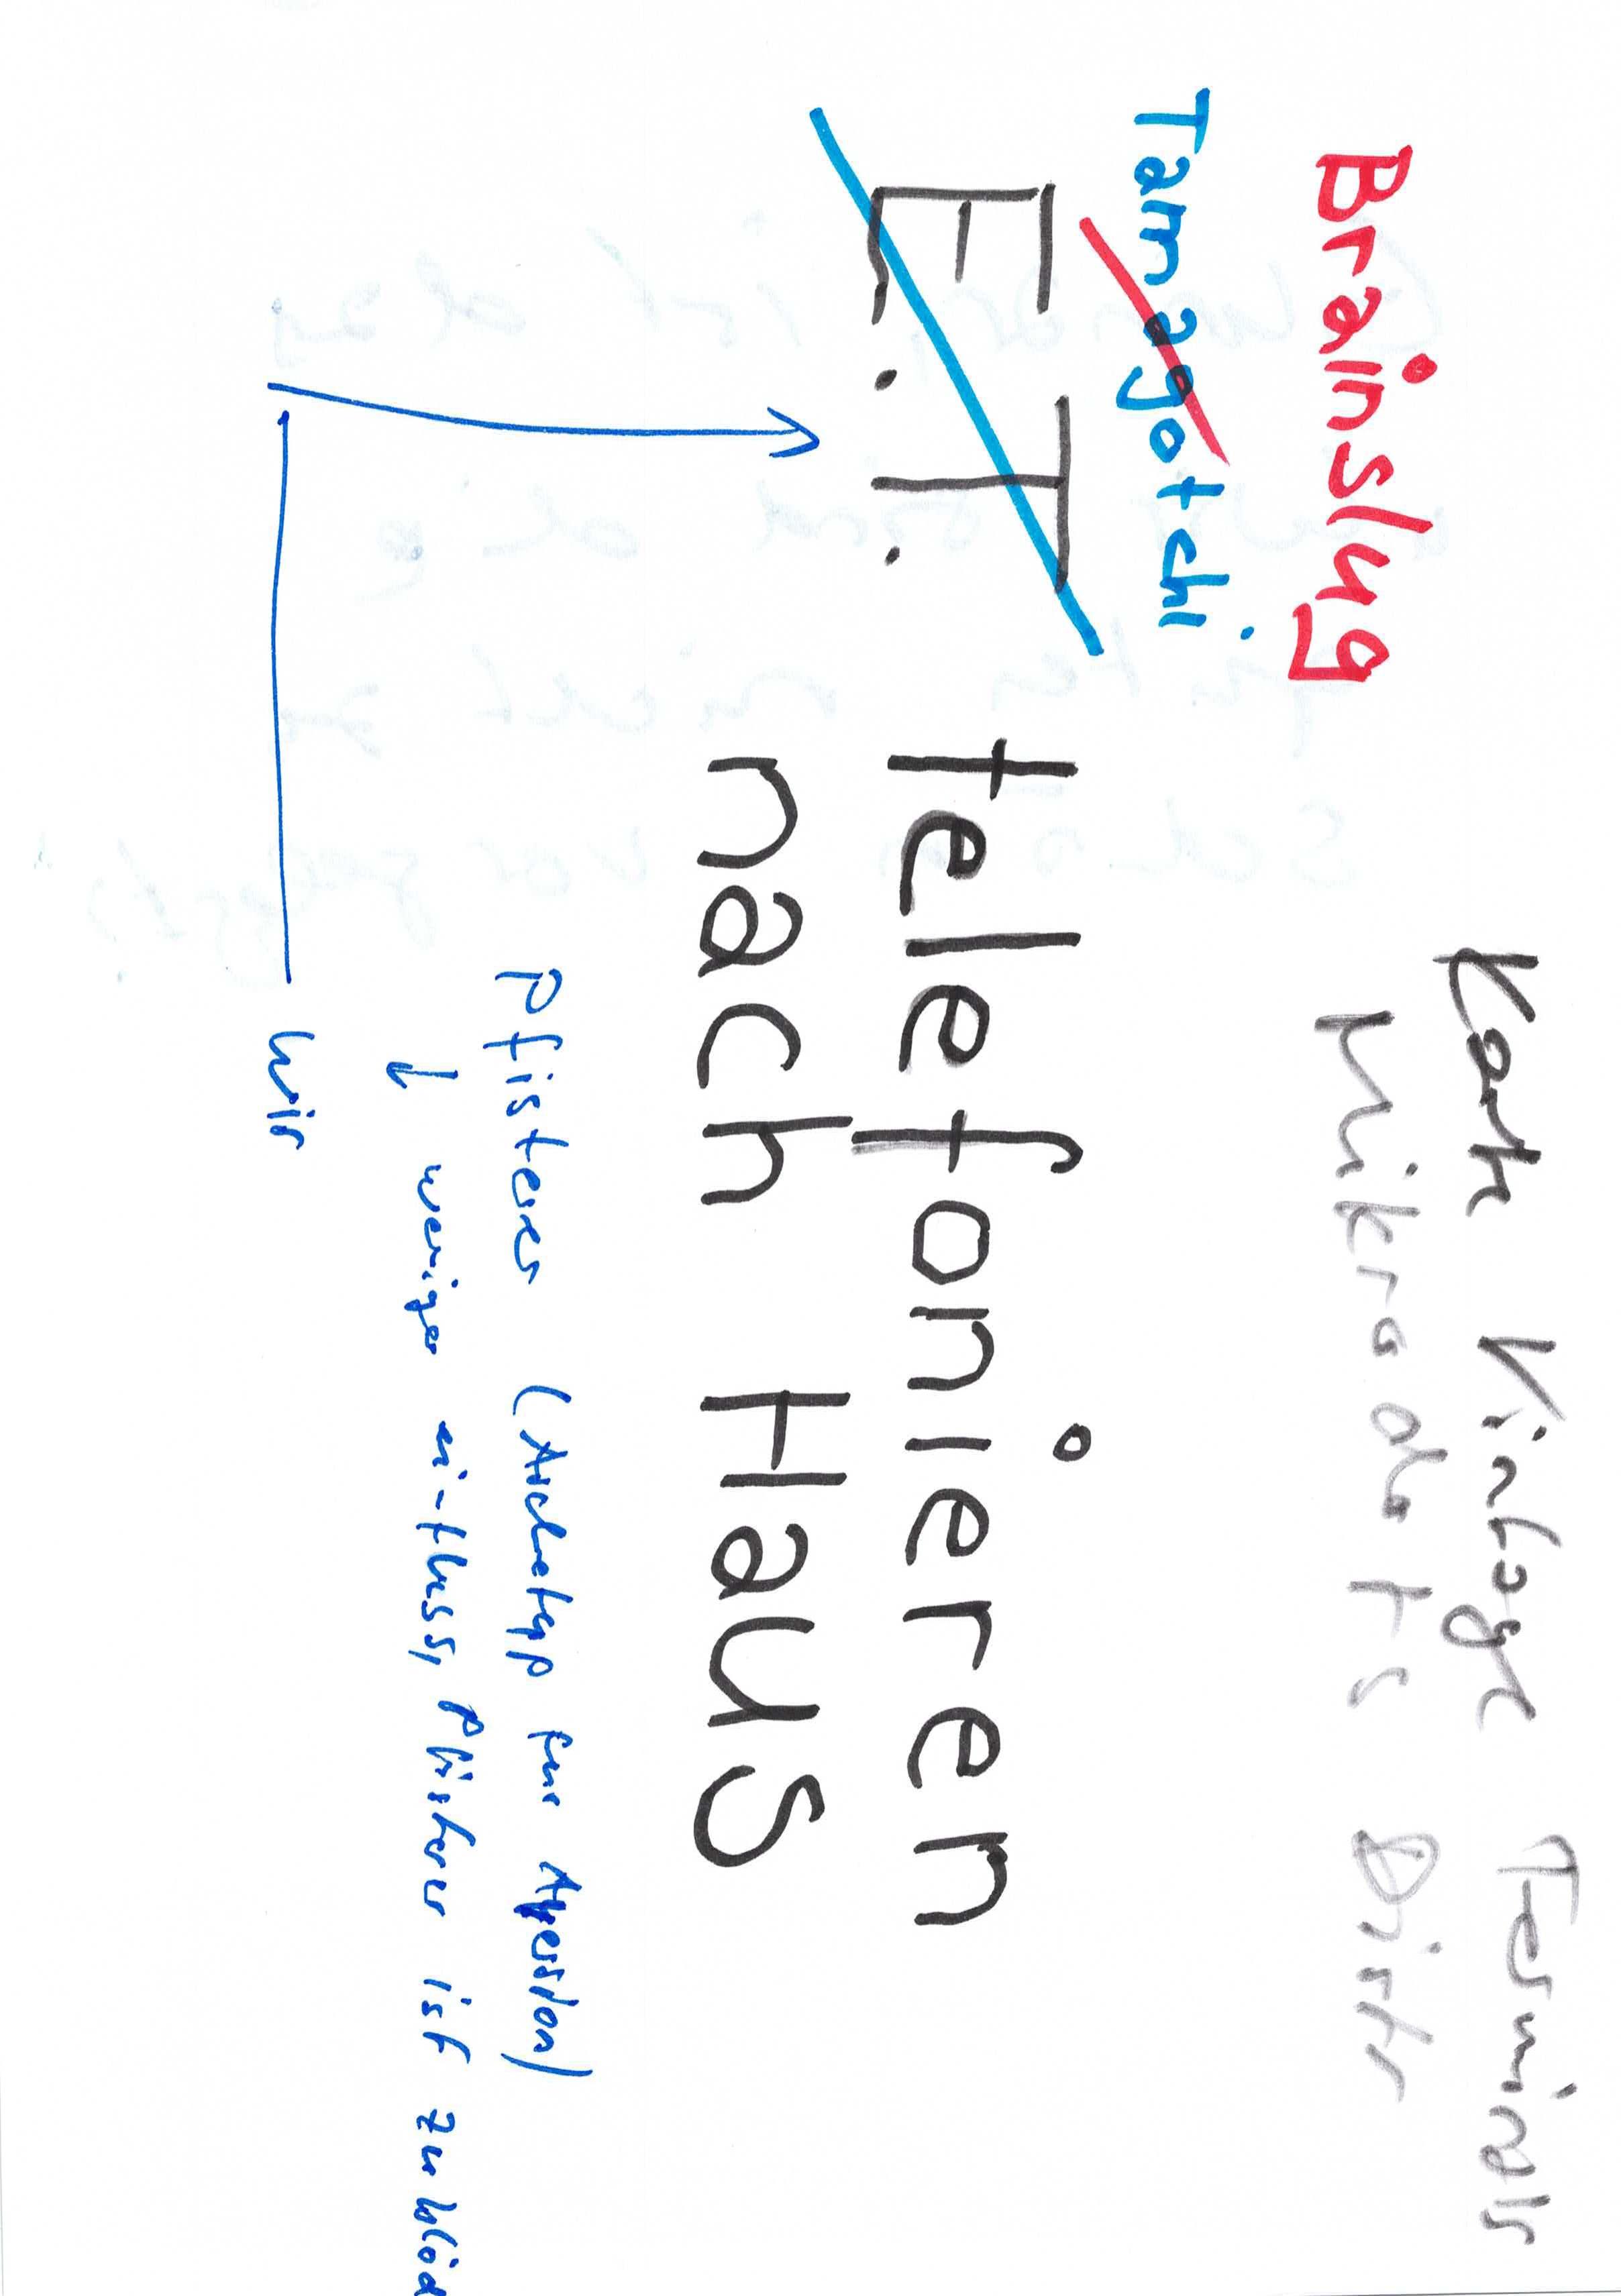 Karte Vintage Terminals
Mikrodots Distr
Brainslug
Tamagotchi
E.T. telefonieren
nach Haus
Pfisterer (Archetyp für Aversion)
↓ weniger einfluss, Pfisterer ist zu blöd
Wir